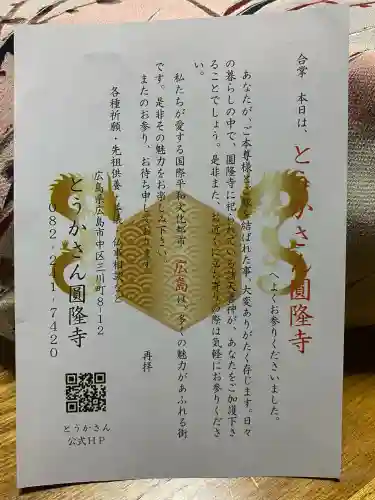 合掌 本日は、とうかさん圓隆寺
へよくお参りくださいました。
あなたが、ご本尊様とご縁を結ばれた事、大変ありがたく存じます。日々
の暮らしの中で、圓隆寺に祀られている
大善神が、あなたをご加護下さ
ることでしょう。是非また、お近くに
の際は気軽にお参りくださ
い。
私たちが愛する国際平和文化都市 広島は、多くの魅力があふれる街
です。是非その魅力をお楽しみ下さい。
またのお参り、お待ち申し
ります
再拝
各種祈願・先祖供養・
仏事相談など
広島県広島市中区三川町8-12
とうかさん圓隆寺
082-241-7420
とうかさん
公式HP